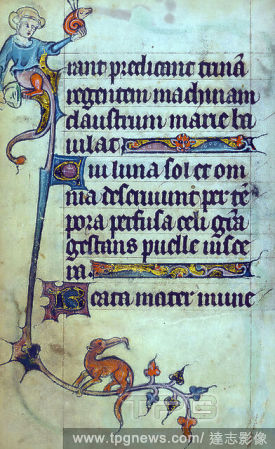 rant predicant trinā
regentem machinam
claustrum marie ba
iulat
Cui luna sol et om
nia deseruiunt per tē
pora perfusa celi grā
gestans puelle uisce
ra
Beata mater mune
TPG
www.tpgnews.com/ 達志影像